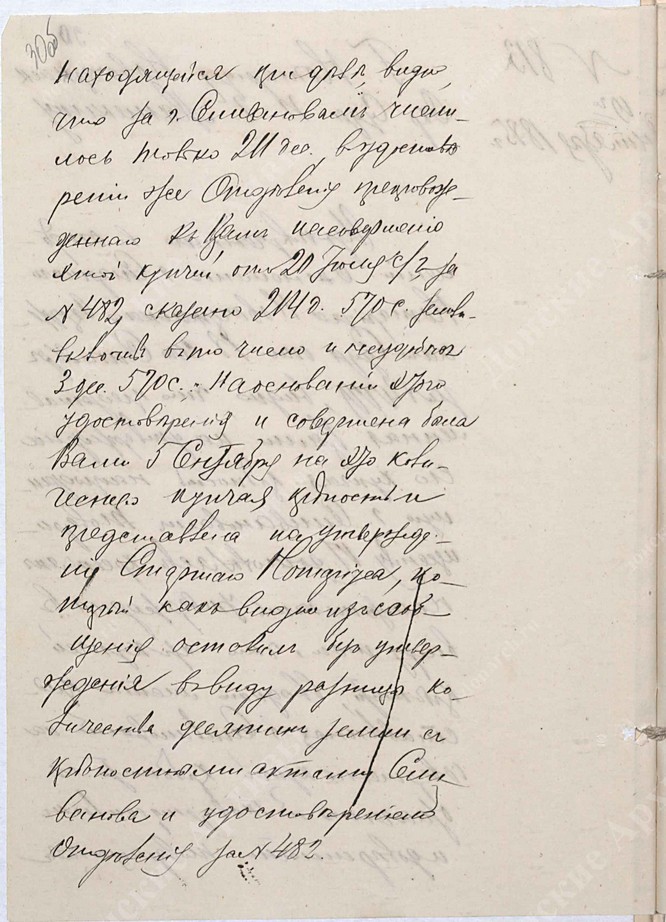 30 об
находящейся при дѣлѣ, видно,
что за г. Селивановымъ числи-
лось только 211 дес., в удостовѣ
реніи же Отдѣленія препровож-
деннаго къ Вамъ
купчей отъ 20 Іюля с/г за
№ 482, сказано 214 д. 570 с.
въ то число и неудобной
3 дес. 570 с. На основаніи этого
удостовѣренія и совершена была
Вами 5 Сентября на это коли-
чество купчая крѣпость и
представлена на утвержде-
ніе Старшаго Нотаріуса, ко-
торый какъ видно изъ сооб-
щенія оставилъ безъ утвер-
жденія въ виду разницы ко-
личества десятинъ земли съ
крѣпостными актами Сели
ванова и удостовѣреніемъ
Отдѣленія за № 482.